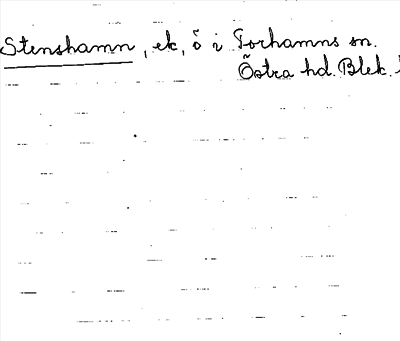 Stenshamn, ek, ö i Torhamns sn.
Östra hd. Blek.